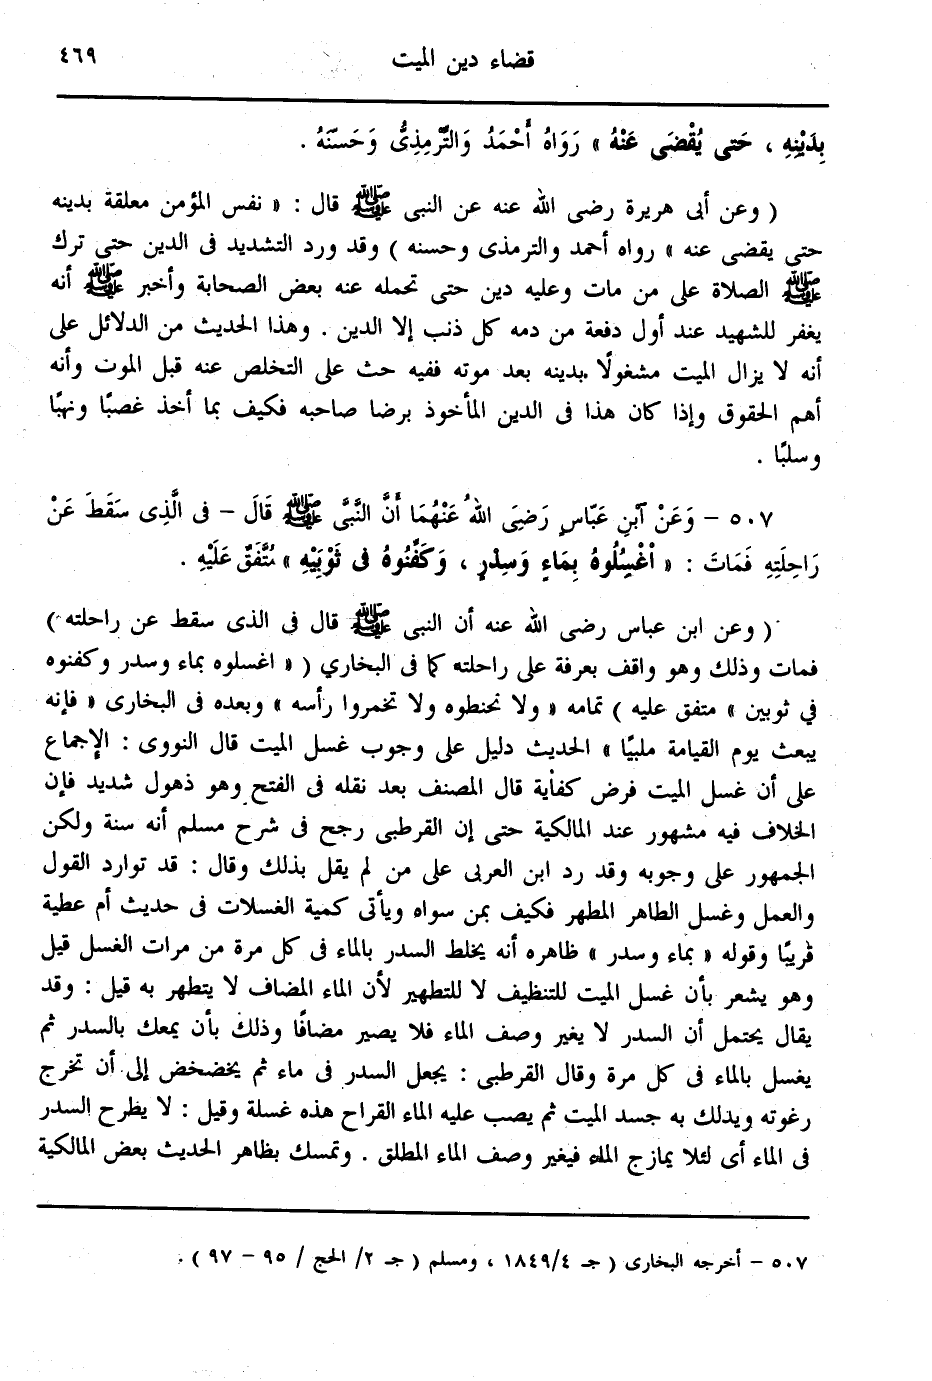 قضاء دين الميت ٤٦٩
بِدَيْنِهِ ، حَتى يُقْضَى عَنْهُ » رَوَاهُ أَحْمَدُ وَالتِّرْمِذِىُّ وَحَسَّنَهُ .
( وعن أبى هريرة رضى الله عنه عن النبى ﷺ قال : « نفس المؤمن معلقة بدينه
حتى يقضى عنه » رواه أحمد والترمذى وحسنه ) وقد ورد التشديد فى الدين حتى ترك
ﷺ الصلاة على من مات وعليه دين حتى تحمله عنه بعض الصحابة وأخبر ﷺ أنه
يغفر للشهيد عند أول دفعة من دمه كل ذنب إلا الدين . وهذا الحديث من الدلائل على
أنه لا يزال الميت مشغولًا بدينه بعد موته ففيه حث على التخلص عنه قبل الموت وأنه
أهم الحقوق وإذا كان هذا فى الدين المأخوذ برضا صاحبه فكيف بما أخذ غصبًا ونهبًا
وسلبًا .
٥٠٧ – وَعَنْ آبْنِ عَبّاسٍ رَضِىَ اللهُ عَنْهُمَا أَنَّ النَّبىَّ ﷺ قَالَ – فى الَّذِى سَقَطَ عَنْ
رَاحِلَتِهِ فَمَاتَ : « اْغْسِلُوهُ بِمَاءٍ وَسِدْرٍ ، وَكَفِّنُوهُ فى ثَوْبَيْهِ » مُتَّفَقٌ عَلَيْهِ .
( وعن ابن عباس رضى الله عنه أن النبى ﷺ قال فى الذى سقط عن راحلته )
فمات وذلك وهو واقف بعرفة على راحلته كما فى البخاري ( « اغسلوه بماء وسدر وكفنوه
في ثوبين » متفق عليه ) تمامه « ولا تحنطوه ولا تخمروا رأسه » وبعده فى البخارى « فإنه
يبعث يوم القيامة ملبيًا » الحديث دليل على وجوب غسل الميت قال النووى : الإجماع
على أن غسل الميت فرض كفاية قال المصنف بعد نقله فى الفتح وهو ذهول شديد فإن
الخلاف فيه مشهور عند المالكية حتى إن القرطبى رجح فى شرح مسلم أنه سنة ولكن
الجمهور على وجوبه وقد رد ابن العربى على من لم يقل بذلك وقال : قد توارد القول
والعمل وغسل الطاهر المطهر فكيف بمن سواه ويأتى كمية الغسلات فى حديث أم عطية
قريبًا وقوله « بماء وسدر » ظاهره أنه يخلط السدر بالماء فى كل مرة من مرات الغسل قيل
وهو يشعر بأن غسل الميت للتنظيف لا للتطهير لأن الماء المضاف لا يتطهر به قيل : وقد
يقال يحتمل أن السدر لا يغير وصف الماء فلا يصير مضافًا وذلك بأن يمعك بالسدر ثم
يغسل بالماء فى كل مرة وقال القرطبى : يجعل السدر فى ماء ثم يخضخض إلى أن تخرج
رغوته ويدلك به جسد الميت ثم يصب عليه الماء القراح هذه غسلة وقيل : لا يطرح السدر
فى الماء أى لئلا يمازج الماء فيغير وصف الماء المطلق . وتمسك بظاهر الحديث بعض المالكية
٥٠٧ – أخرجه البخارى ( جـ ١٨٤٩/٤ ، ومسلم ( جـ ٢/ الحج / ٩٥ – ٩٧ ) .